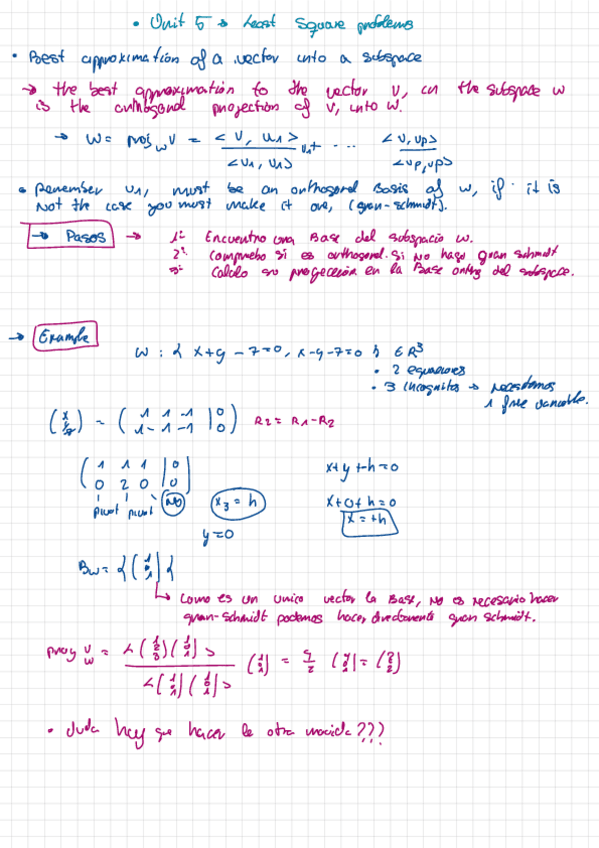 • Unit 5 → Least Square problems
• Best approximation of a vector into a subspace
→ the best approximation to the vector v, in the subspace w
is the orthogonal projection of v, into w.
→ w = proj_w v = <v, u1> / <u1, u1> u1 + ... <v, up> / <up, up>
• Remember u1, must be an orthogonal Basis of w, if it is
Not the case you must make it one, (gram-schmidt).
→ Pasos → 1º Encuentro una Base del subespacio w.
2º compruebo si es orthogonal. Si no hago gram schmidt
3º Calculo su proyección en la Base ortog del subspace.
→ Example
w : { x+y-z=0, x-y-z=0 } ∈ R³
• 2 equaciones
• 3 incognitas → necesitamos
1 free variable.
(x y z) ~ (1 1 -1 | 0
1 -1 -1 | 0) R2 = R1-R2
(1 1 1 | 0
0 2 0 | 0)
x+y+h=0
pivot pivot NO
x3 = h
x+0+h=0
x=+h
y=0
Bw = {(1 0 1)}
↳ Como es un unico vector la Base, No es necesario hacer
gram-schmidt podemos hacer directamente gram schmidt.
proy v w = <(1 2 3)(1 0 1)> / <(1 0 1)(1 0 1)> (1 0 1) = 4/2 (1 0 1) = (2 0 2)
• duda hay que hacer la otra movida???